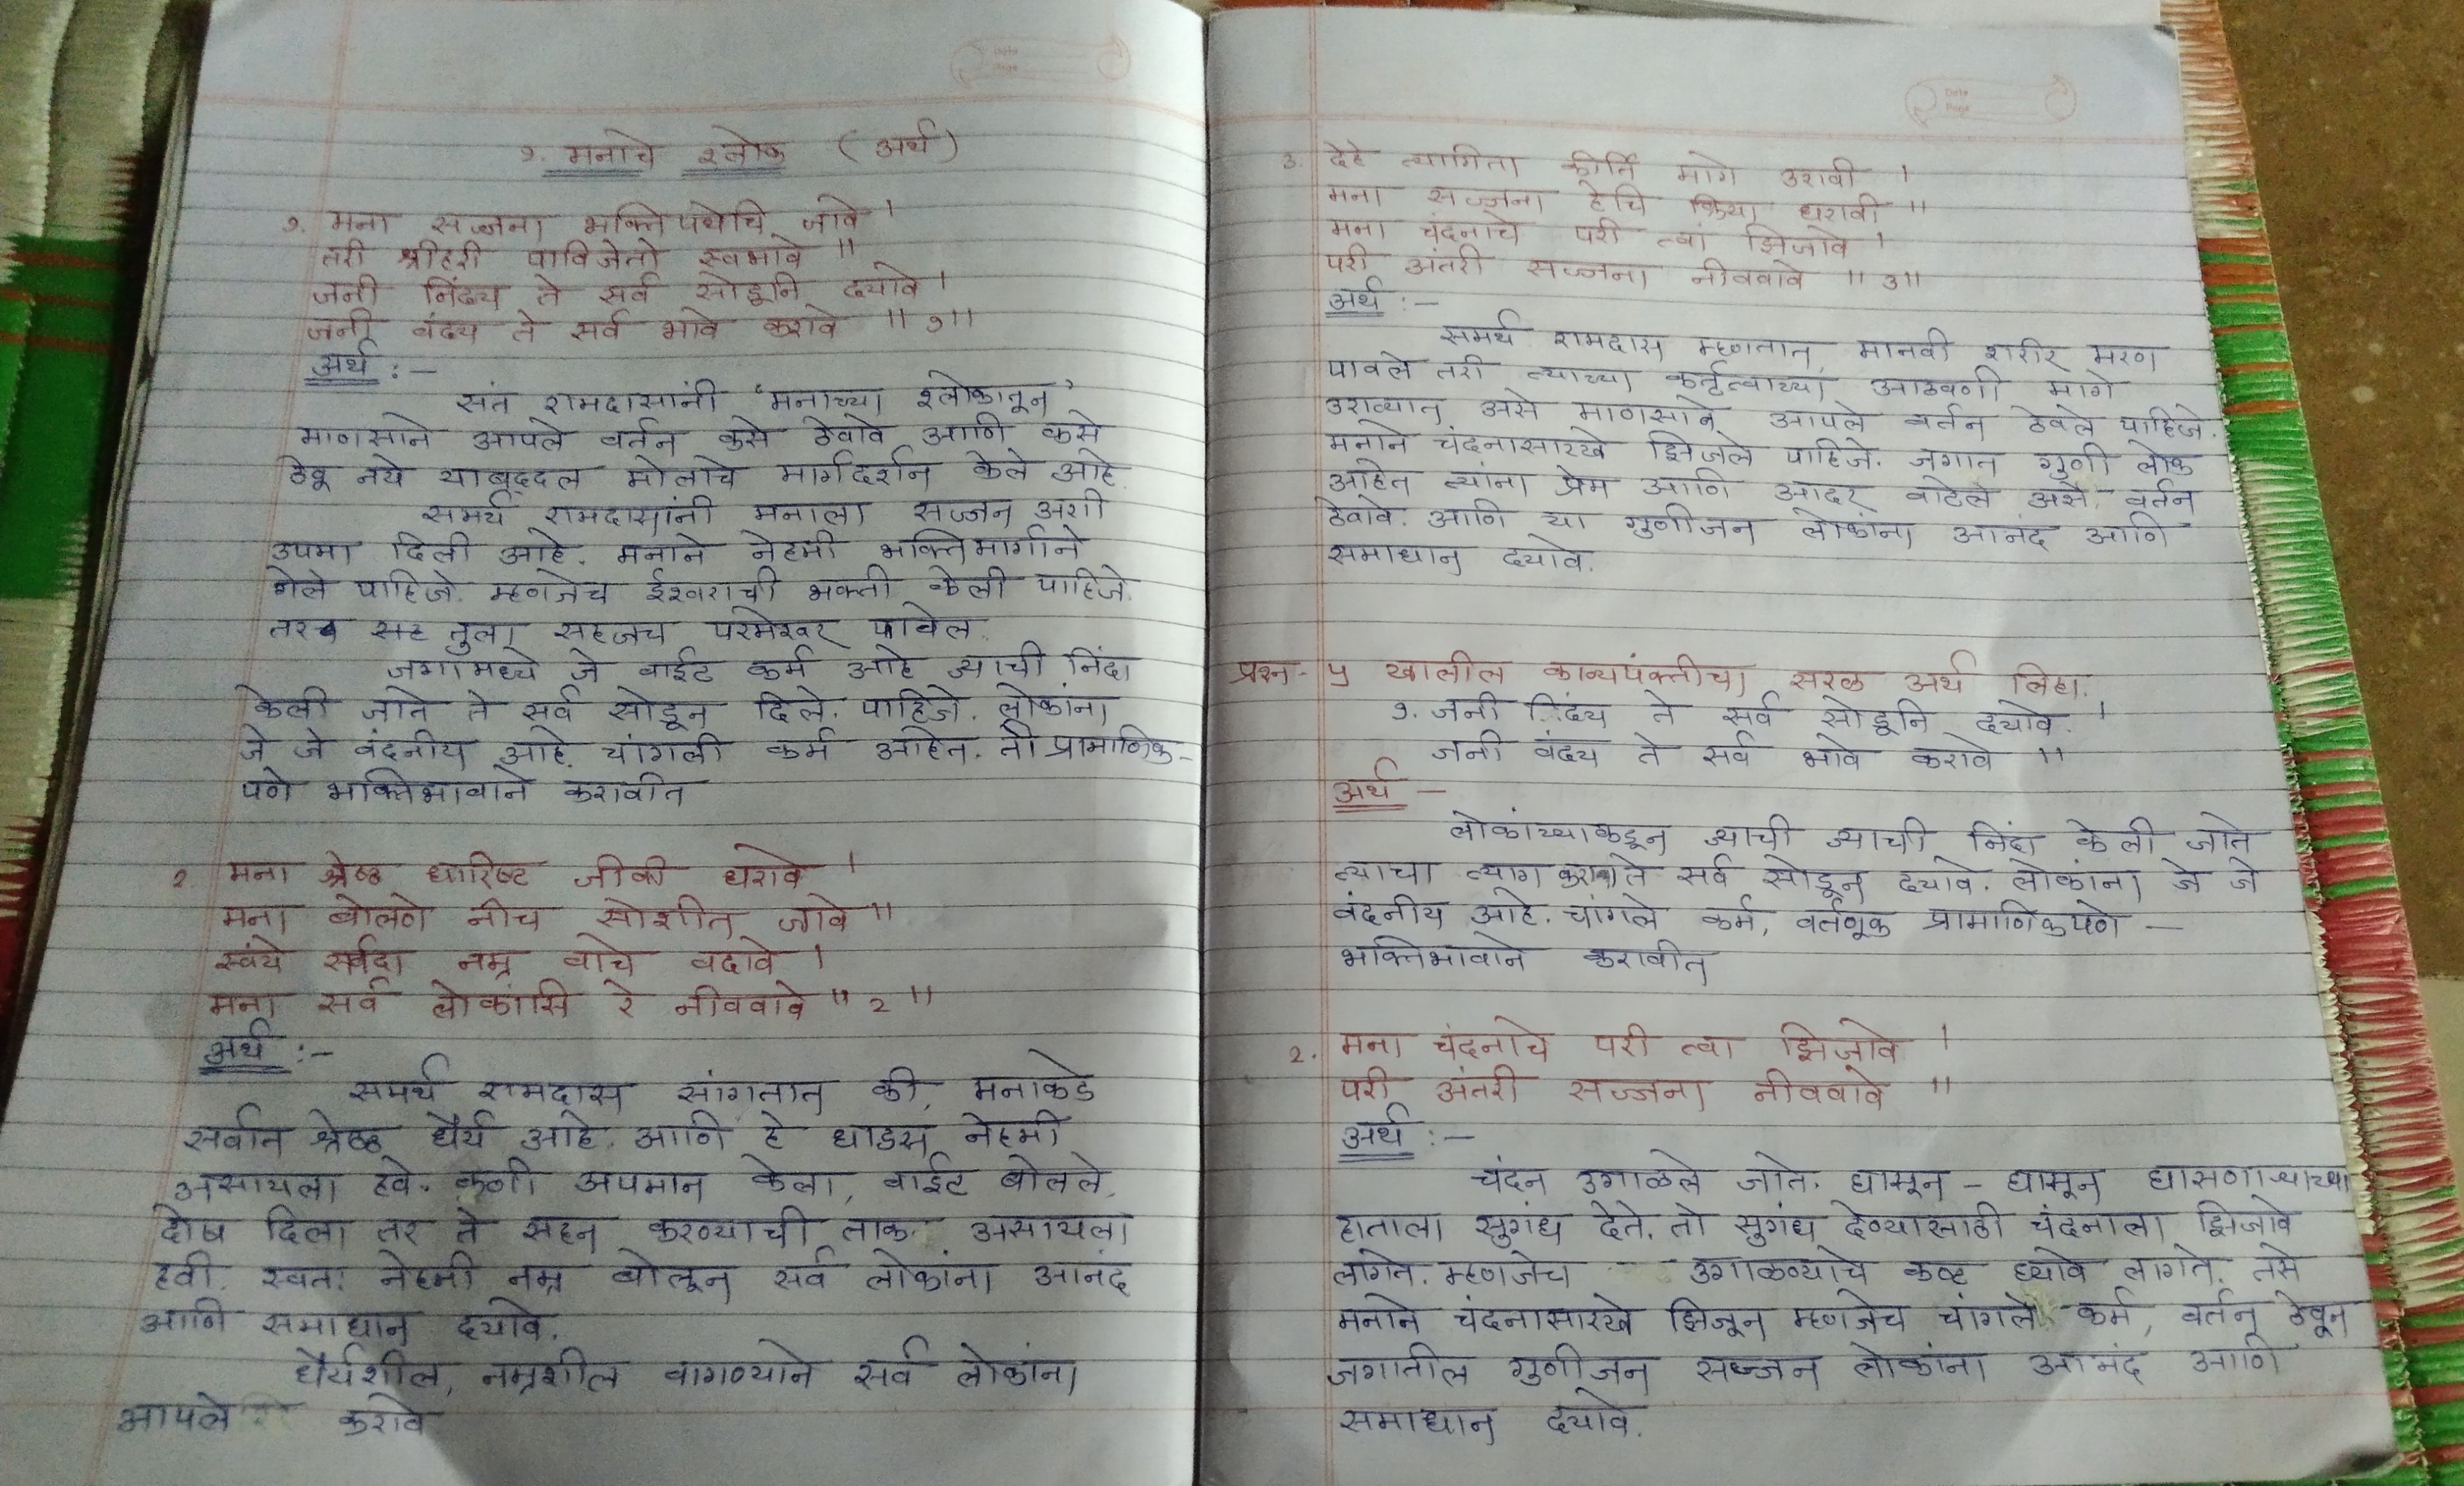 १. मनाचे श्लोक (अर्थ)
१. मना सज्जना भक्तिपंथेचि जावे ।
तरी श्रीहरी पाविजेतो स्वभावे ॥
जनी निंद्य ते सर्व सोडूनि द्यावे ।
जनी वंद्य ते सर्व भावे करावे ॥१॥
अर्थ :-
संत रामदासांनी 'मनाच्या श्लोकातून'
माणसाने आपले वर्तन कसे ठेवावे आणि कसे
ठेवू नये याबद्दल मोलाचे मार्गदर्शन केले आहे.
समर्थ रामदासांनी मनाला सज्जन अशी
उपमा दिली आहे. मनाने नेहमी भक्तिमार्गाने
गेले पाहिजे. म्हणजेच ईश्वराची भक्ती केली पाहिजे.
तरच तुला सहजच परमेश्वर पावेल.
जगामध्ये जे वाईट कर्म आहे ज्याची निंदा
केली जाते ते सर्व सोडून दिले. पाहिजे. लोकांना
जे जे वंदनीय आहे. चांगली कर्म आहेत. ती प्रामाणिक-
पणे भक्तिभावाने करावीत
२. मना श्रेष्ठ धारिष्ट जीवी धरावे ।
मना बोलणे नीच सोशीत जावे ॥
स्वंये सर्वदा नम्र वाचे वदावे ।
मना सर्व लोकांसि रे नीववावे ॥२॥
अर्थ :-
समर्थ रामदास सांगतात की, मनाकडे
सर्वात श्रेष्ठ धैर्य आहे. आणि हे धाडस नेहमी
असायला हवे. कुणी अपमान केला, वाईट बोलले,
दोष दिला तर ते सहन करण्याची ताक असायला
हवी. स्वतः नेहमी नम्र बोलून सर्व लोकांना आनंद
आणि समाधान द्यावे.
धैर्यशील, नम्रशील वागण्याने सर्व लोकांना
आपले करावे
३. देहे त्यागिता कीर्ति मागे उरावी ।
मना सज्जना हेचि क्रिया धरावी ॥
मना चंदनाचे परी त्वां झिजावे ।
परी अंतरी सज्जना नीववावे ॥३॥
अर्थ :-
समर्थ रामदास म्हणतात, मानवी शरीर मरण
पावले तरी त्याच्या कर्तृत्वाच्या आठवणी मागे
उराव्यात, असे माणसाने आपले वर्तन ठेवले पाहिजे.
मनाने चंदनासारखे झिजले पाहिजे. जगात गुणी लोक
आहेत त्यांना प्रेम आणि आदर वाटेल असे वर्तन
ठेवावे. आणि या गुणीजन लोकांना आनंद आणि
समाधान द्यावे.
प्रश्न- ५ खालील काव्यपंक्तीचा सरळ अर्थ लिहा.
१. जनी निंद्य ते सर्व सोडूनि द्यावे. ।
जनी वंद्य ते सर्व भावे करावे ॥
अर्थ -
लोकांच्याकडून ज्याची ज्याची निंदा केली जाते
त्याचा त्याग करावा ते सर्व सोडून द्यावे. लोकांना जे जे
वंदनीय आहे. चांगले कर्म, वर्तणूक प्रामाणिकपणे -
भक्तिभावाने करावीत
2. मना चंदनाचे परी त्वा झिजावे ।
परी अंतरी सज्जना नीववावे ॥
अर्थ :-
चंदन उगाळले जाते. घासून - घासून घासणाऱ्याच्या
हाताला सुगंध देते. तो सुगंध देण्यासाठी चंदनाला झिजावे
लागते. म्हणजेच उगाळण्याचे कष्ट घ्यावे लागते. तसे
मनाने चंदनासारखे झिजून म्हणजेच चांगले कर्म, वर्तन ठेवून
जगातील गुणीजन सज्जन लोकांना आनंद आणि
समाधान द्यावे.